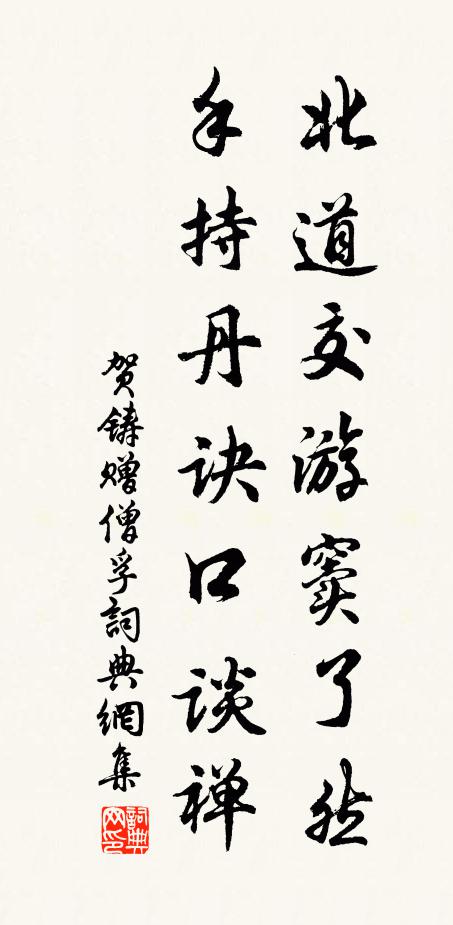 北道交游窦了然
手持丹诀口谈禅
贺鑄赠僧孚詞典網集
詞典网印